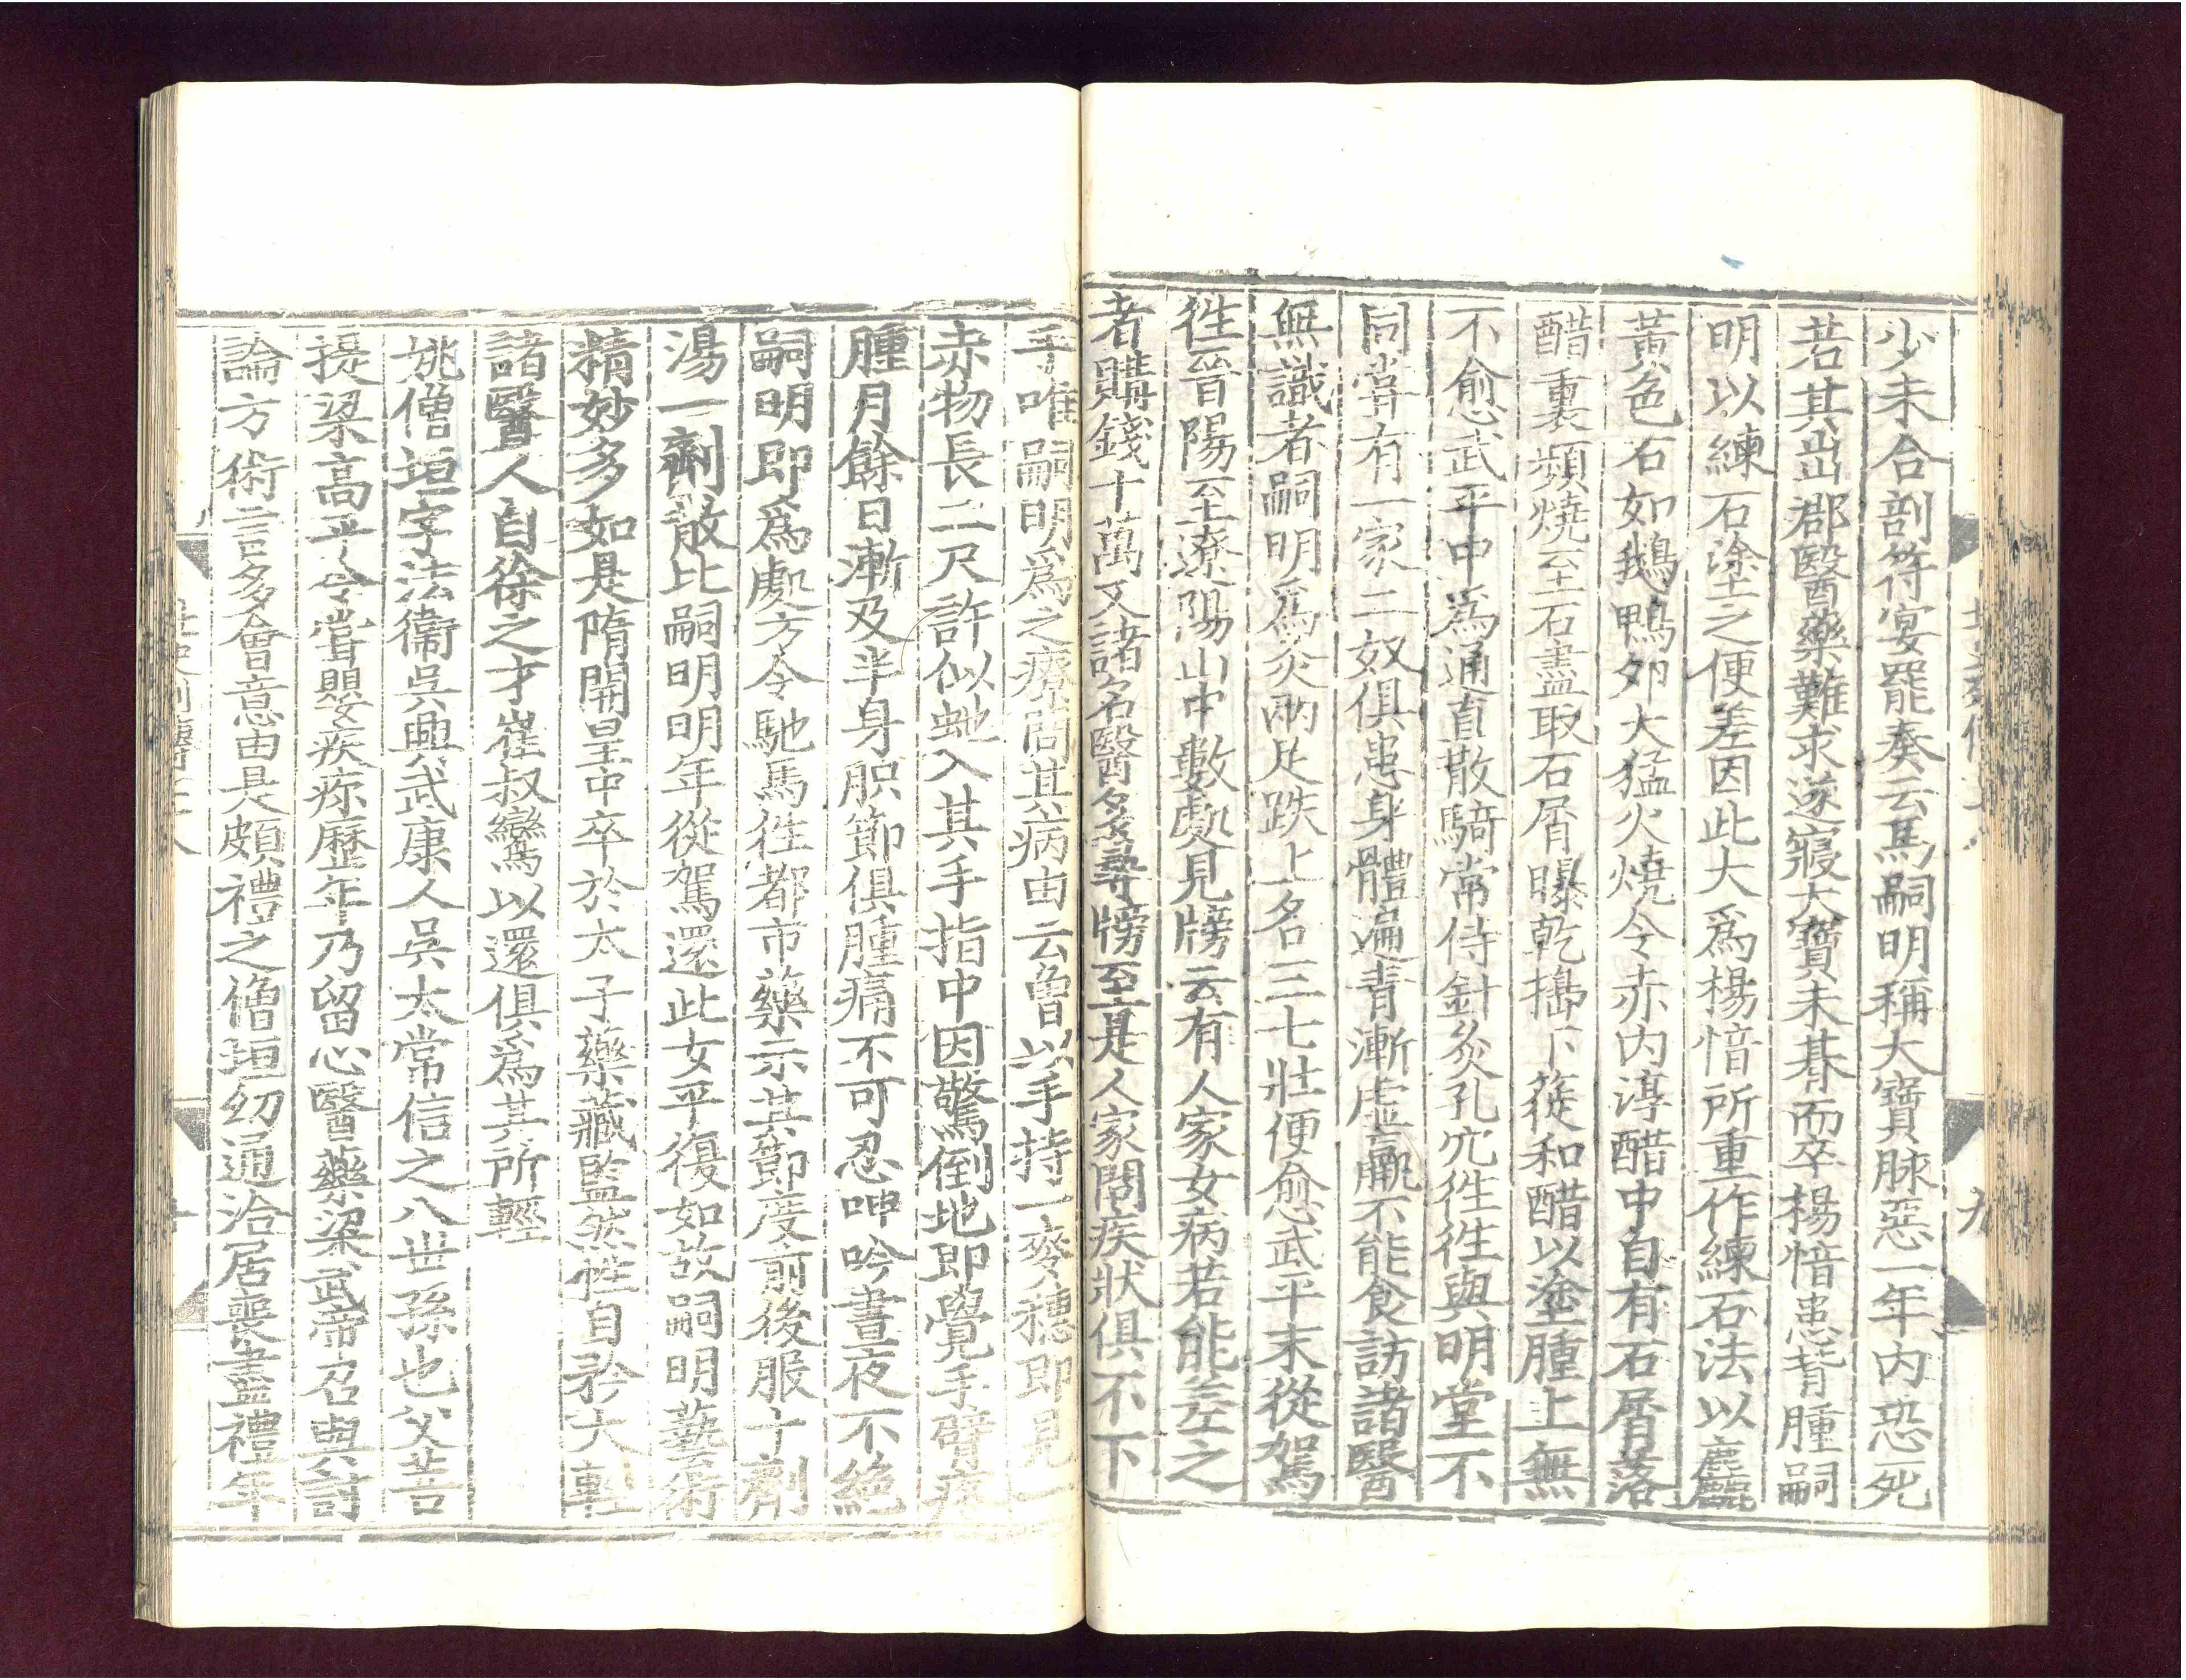 少未合剖符宴罷奏云馬嗣明稱大寶脉惡一年內恐死
若其出郡醫藥難求遂寢大寶未朞而卒楊愔患背腫嗣
明以練石塗之便差因此大爲楊愔所重作練石法以麤
黃色石如鵝鴨夘大猛火燒令赤內淳醋中自有石屑落
醋裏頻燒至石盡取石屑曝乾擣下簁和醋以塗腫上無
不愈武平中爲通直散騎常侍針灸孔穴徃徃與明堂不
同嘗有一家二奴俱患身體遍青漸虛羸不能食訪諸醫
無識者嗣明爲灸兩足趺上各三七壯便愈武平末從駕
徃晉陽至遼陽山中數處見牓云有人家女病若能差之
者購錢十萬文諸名醫多尋牓至是人家問疾狀俱不下
手唯嗣明爲之療問其病由云曾以手持一麥穗即見一
赤物長二尺許似虵入其手指中因驚倒地即覺手臂疼
腫月餘日漸及半身肢節俱腫痛不可忍呻吟晝夜不絶
嗣明即爲處方令馳馬徃都市藥示其節度前後服十劑
湯一劑散比嗣明明年從駕還此女平復如故嗣明藝術
精妙多如是隋開皇中卒於太子藥藏監然性自矜大輕
諸醫人自徐之才崔叔鸞以還俱爲其所輕
姚僧垣字法衞吳興武康人吳太常信之八世孫也父菩
提梁高平令嘗嬰疾疹歷年乃留心醫藥梁武帝召與討
論方術言多會意由是頗禮之僧垣幼通洽居喪盡禮年
九